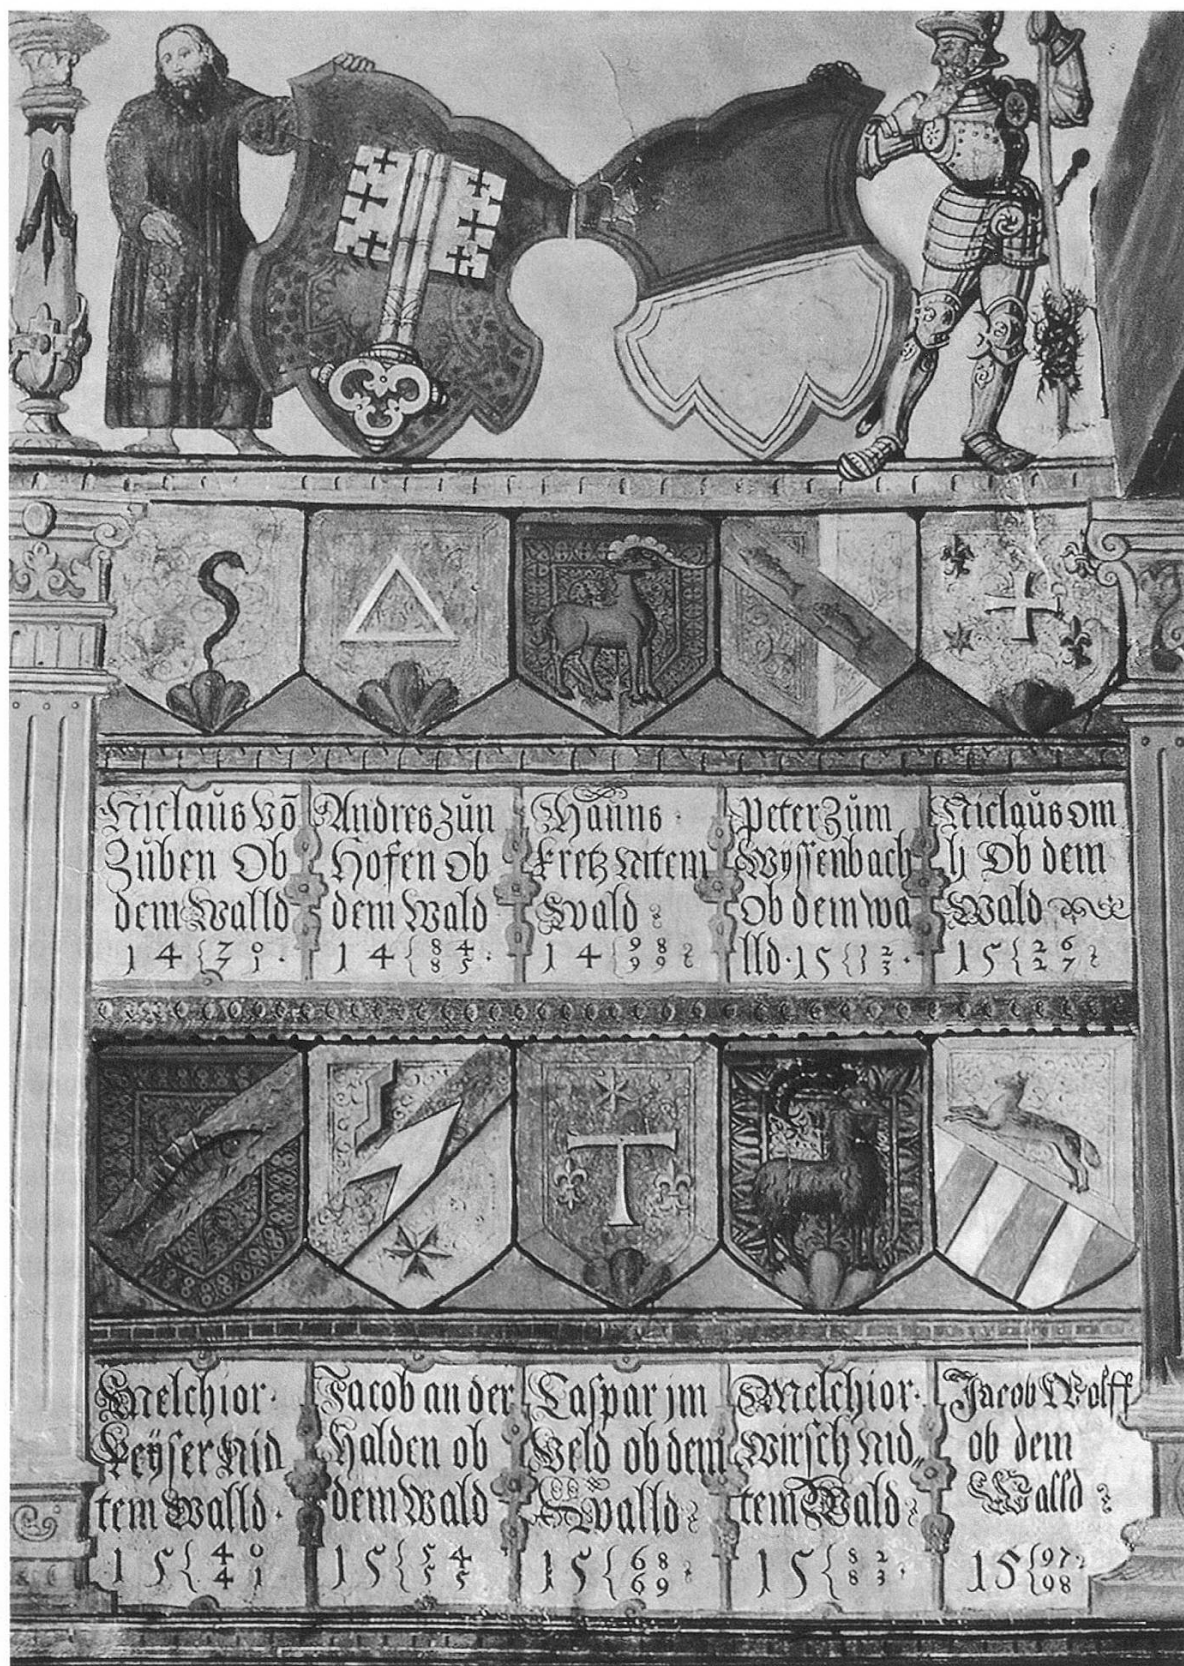 Niclaůs Võ
Zůben Ob
dem Walld
14{70
71.
Andres Zůn
Hofen ob
dem Wald
14{84
85.
Hanns.
kretz Nitem
Wald
14{98
99
Peter Zům
Wÿssenbach
Ob dem wa
lld. 15{12
3.
Niclaůs om
lj Ob dem
Wald
15{26
27
Melchior.
Keÿser Nid
tem Walld.
15{40
41
Jacob an der
Halden ob
dem Wald
15{54
55
Caspar jm
Veld ob dem
Walld
15{68
69
Melchior.
Wirsch Nid„
tem Wald
15{82
83.
Jacob Wolff
ob dem
Walld
15{97
98